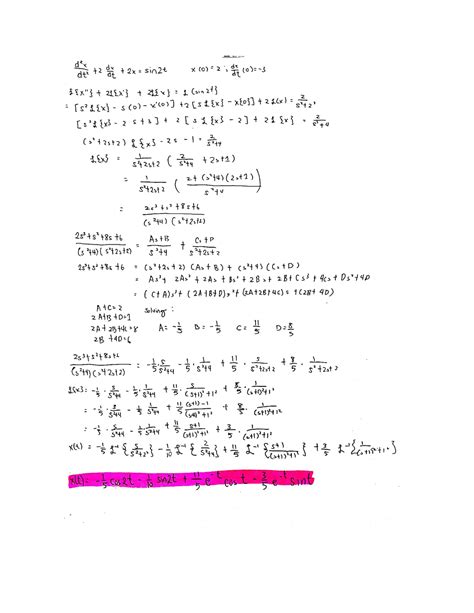 d²x/dt² + 2 dx/dt + 2x = sin2t x(0) = 2 ; dx/dt (0) = -3
ℒ{x''} + 2ℒ{x'} + 2ℒ{x} = ℒ(sin2t)
= [s²ℒ{x} - s(0) - x'(0)] + 2[sℒ{x} - x(0)] + 2ℒ(x) = 2/(s²+2²)
[s²ℒ{x} - 2·s + 3] + 2[sℒ{x} - 2] + 2ℒ{x} = 2/(s²+4)
(s²+2s+2) ℒ{x} - 2s - 1 = 2/(s²+4)
ℒ{x} = 1/(s²+2s+2) ( 2/(s²+4) + 2s+1 )
= 1/(s²+2s+2) ( (2+(s²+4)(2s+1))/(s²+4) )
= (2s³+s²+8s+6)/((s²+4)(s²+2s+2))
(2s³+s²+8s+6)/((s²+4)(s²+2s+2)) = (As+B)/(s²+4) + (Cs+D)/(s²+2s+2)
2s³+s²+8s+6 = (s²+2s+2)(As+B) + (s²+4)(Cs+D)
= As³ + 2As² + 2As + Bs² + 2Bs + 2B + Cs³ + 4Cs + Ds² + 4D
= (C+A)s³ + (2A+B+D)s² + (2A+2B+4C)s + (2B+4D)
A+C=2 Solving:
2A+B+D=1
2A+2B+4C=8 A=-1/5 B=-1/5 C=11/5 D=8/5
2B+4D=6
(2s³+s²+8s+6)/((s²+4)(s²+2s+2)) = -1/5·s/(s²+4) - 1/5·1/(s²+4) + 11/5·s/(s²+2s+2) + 8/5·1/(s²+2s+2)
ℒ{x} = -1/5·s/(s²+4) - 1/5·1/(s²+4) + 11/5·s/((s+1)²+1²) + 8/5·1/((s+1)²+1²)
= -1/5·s/(s²+4) - 1/5·1/(s²+4) + 11/5 ((s+1)-1)/((s+1)²+1²) + 8/5·1/((s+1)²+1²)
= -1/5·s/(s²+4) - 1/5·1/(s²+4) + 11/5 (s+1)/((s+1)²+1²) - 3/5·1/((s+1)²+1²)
x(t) = -1/5 ℒ⁻¹{s/(s²+2²)} - 1/10 ℒ⁻¹{2/(s²+4)} + 11/5 ℒ⁻¹{(s+1)/((s+1)²+1²)} + 3/5 ℒ⁻¹{1/((s+1)²+1²)}
x(t) = -1/5 cos2t - 1/10 sin2t + 11/5 e⁻ᵗ cos t - 3/5 e⁻ᵗ sin t